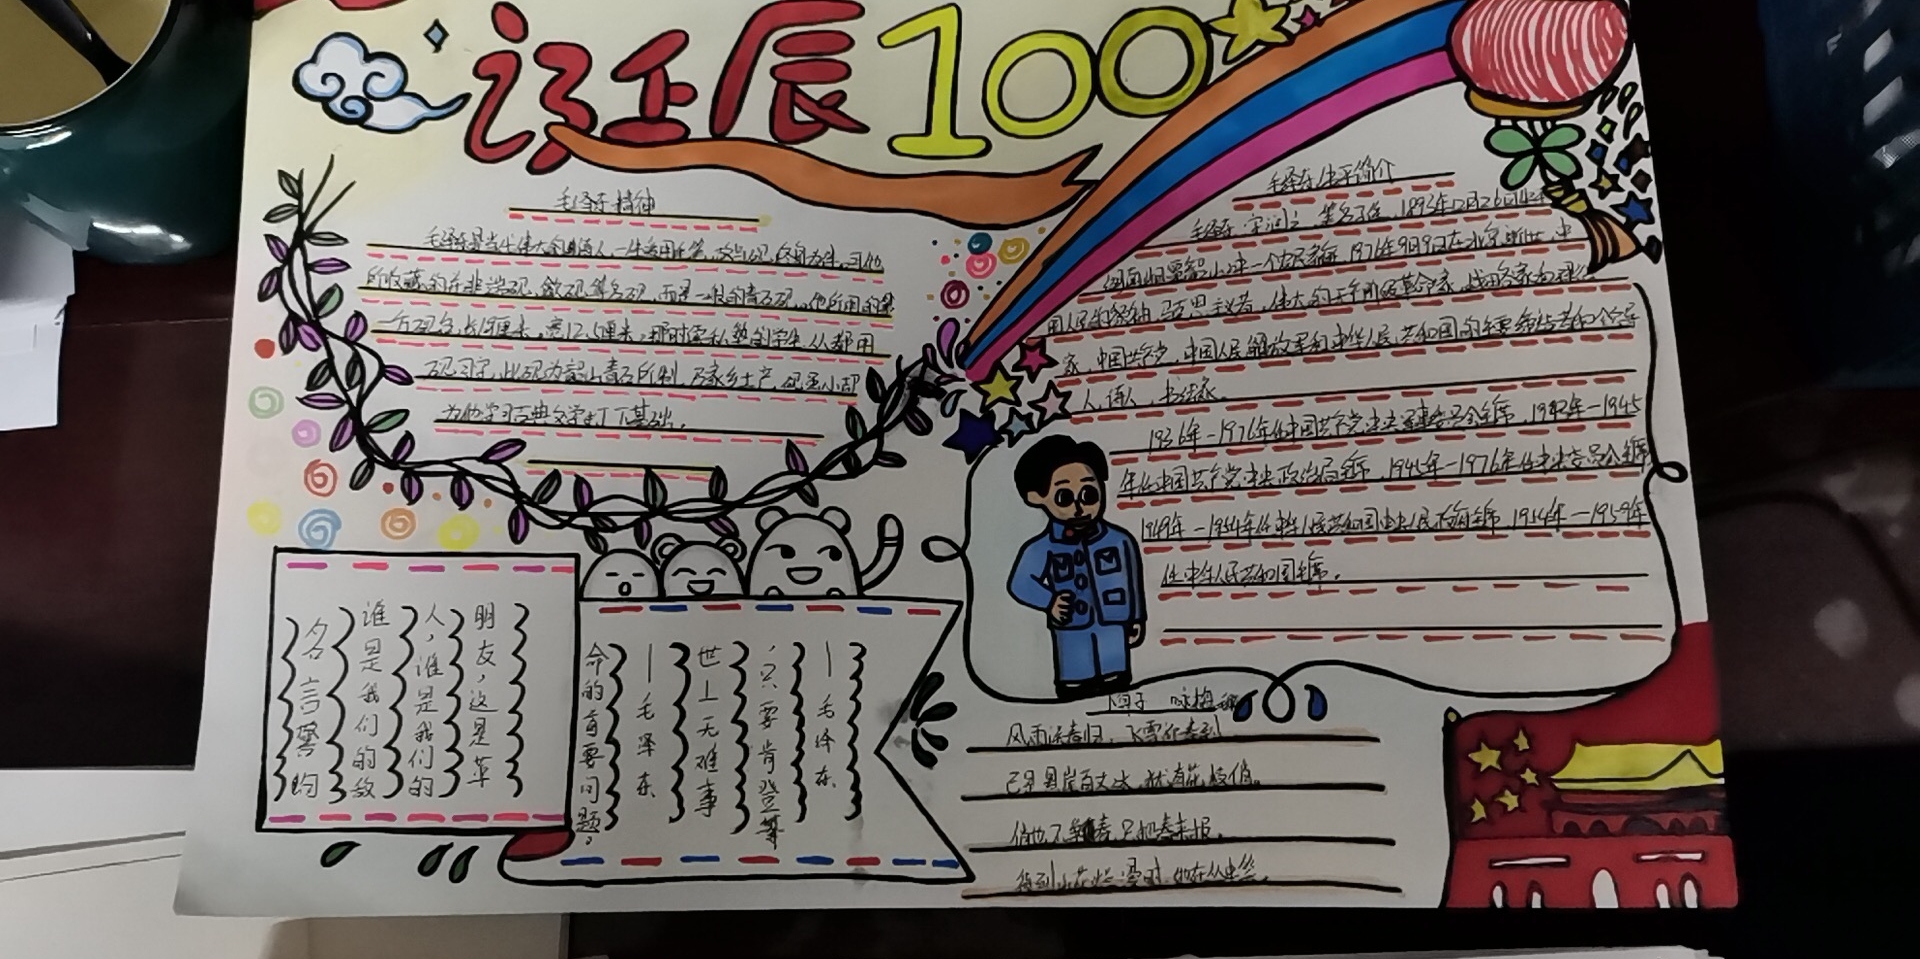 诞辰100
毛泽东精神
毛泽东是当代伟大的诗人,一生
所收藏的并非端砚、歙砚等名砚,而是一般的青石砚,他所用的
一方砚台,长19厘米,宽12.5厘米,那时学生,从都用
砚习字,此砚为韶山青石所制,乃家乡土产,砚
为他学习古典文学打下基础。
毛泽东生平简介
毛泽东,字润之,笔名子任,1893年12月26日
1976年9月9日在北京逝世,中
国人民的领袖,马克思主义者,伟大的无产阶级革命家,战略家和理论
家,中国共产党,中国人民解放军和中华人民共和国的主要缔造者和领导
人,诗人,书法家。
1936年—1976年任中国共产党中央军事委员会主席,1943年—1945
年任中国共产党中央政治局主席,1945年—1976年任中央委员会主席
1949年—1954年任中华人民共和国中央人民政府主席,1954年—1959年
任中华人民共和国主席。
名言警句
谁是我们的敌
人,谁是我们的
朋友,这是革
命的首要问题。
—毛泽东
世上无难事
,只要肯登攀
—毛泽东
卜算子 咏梅
风雨送春归,飞雪迎春到
已是悬崖百丈冰,犹有花枝俏。
俏也不争春,只把春来报。
待到山花烂漫时,她在丛中笑。